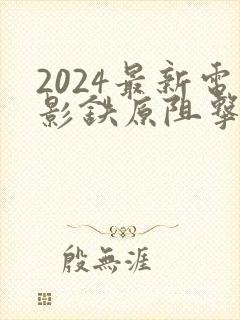 2024最新電
影鉄原阻擊
殷無涯